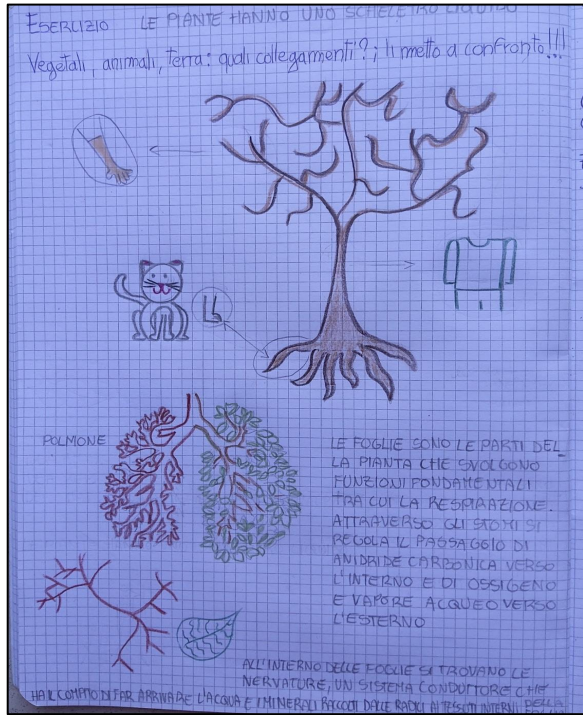 ESERCIZIO LE PIANTE HANNO UNO SCHELETRO LIQUIDO
Vegetali, animali, terra: quali collegamenti?; li metto a confronto!!!
POLMONE
LE FOGLIE SONO LE PARTI DEL_
LA PIANTA CHE SVOLGONO
FUNZIONI FONDAMENTALI
TRA CUI LA RESPIRAZIONE.
ATTRAVERSO GLI STOMI SI
REGOLA IL PASSAGGIO DI
ANIDRIDE CARBONICA VERSO
L'INTERNO E DI OSSIGENO
E VAPORE ACQUEO VERSO
L'ESTERNO
ALL'INTERNO DELLE FOGLIE SI TROVANO LE
NERVATURE, UN SISTEMA CONDUTTORE CHE
HA IL COMPITO DI FAR ARRIVARE L'ACQUA E I MINERALI RACCOLTI DALLE RADICI AI TESSUTI INTERNI DELLA